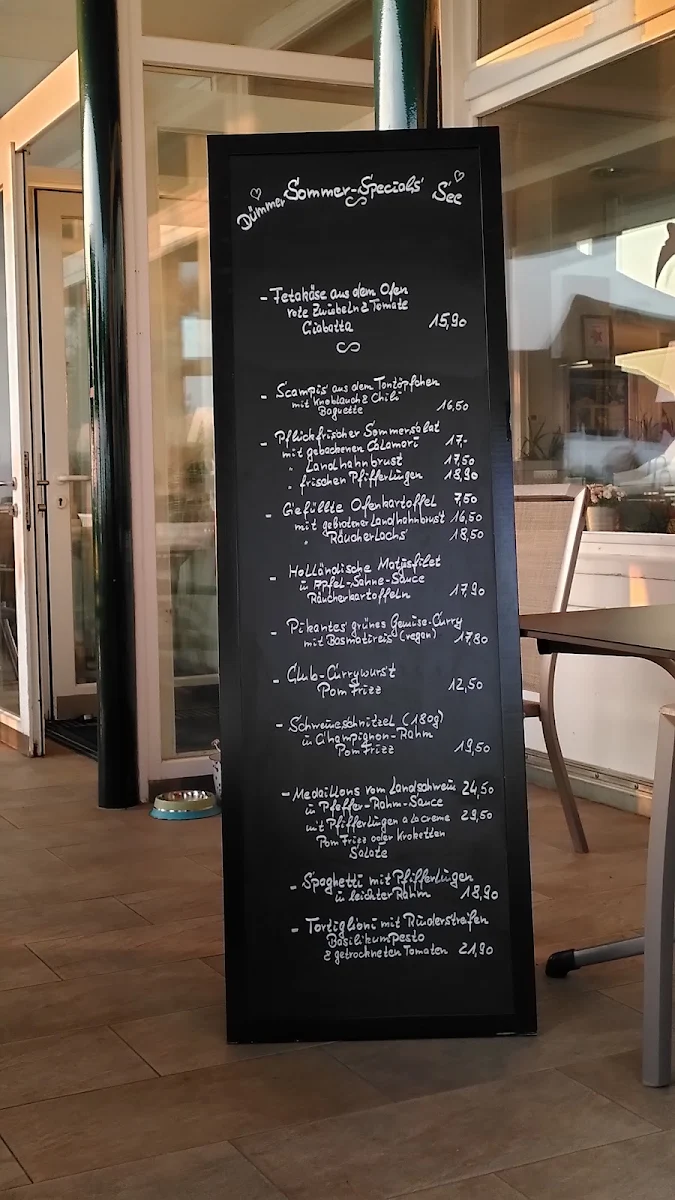 Dümmer Sommer-Specials See
- Fetakäse aus dem Ofen
rote Zwiebeln & Tomate
Ciabatta 15,90
- Scampis aus dem Tontöpfchen
mit Knoblauch & Chili
Baguette 16,50
- Pflückfrischer Sommersalat
mit gebackenen Calamari 17,-
" Landhahnbrust 17,50
" frischen Pfifferlingen 18,90
- Gefüllte Ofenkartoffel 7,50
mit gebratener Landhahnbrust 16,50
" Räucherlachs 18,50
- Holländische Matjesfilet
in Apfel-Sahne-Sauce
Räucherkartoffeln 17,90
- Pikantes grünes Gemüse-Curry
mit Basmatireis (vegan) 17,80
- Club-Currywurst
Pom Frizz 12,50
- Schweineschnitzel (180g)
in Champignon-Rahm
Pom Frizz 19,50
- Medaillons vom Landschwein 24,50
in Pfeffer-Rahm-Sauce
mit Pfifferlingen a la creme 29,50
Pom Frizz oder Kroketten
Salate
- Spaghetti mit Pfifferlingen
in leichter Rahm 18,90
- Tortiglioni mit Rinderstreifen
Basilikumpesto
& getrockneten Tomaten 21,90